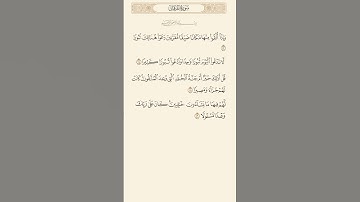 سورة الفرقان
وَإِذَا أُلْقُوا مِنْهَا مَكَانًا ضَيِّقًا مُقَرَّنِينَ دَعَوْا هُنَالِكَ ثُبُورًا
لَا تَدْعُوا الْيَوْمَ ثُبُورًا وَاحِدًا وَادْعُوا ثُبُورًا كَثِيرًا
قُلْ أَذَٰلِكَ خَيْرٌ أَمْ جَنَّةُ الْخُلْدِ الَّتِي وُعِدَ الْمُتَّقُونَ كَانَتْ
لَهُمْ جَزَاءً وَمَصِيرًا
لَهُمْ فِيهَا مَا يَشَاءُونَ خَالِدِينَ كَانَ عَلَىٰ رَبِّكَ
وَعْدًا مَسْئُولًا